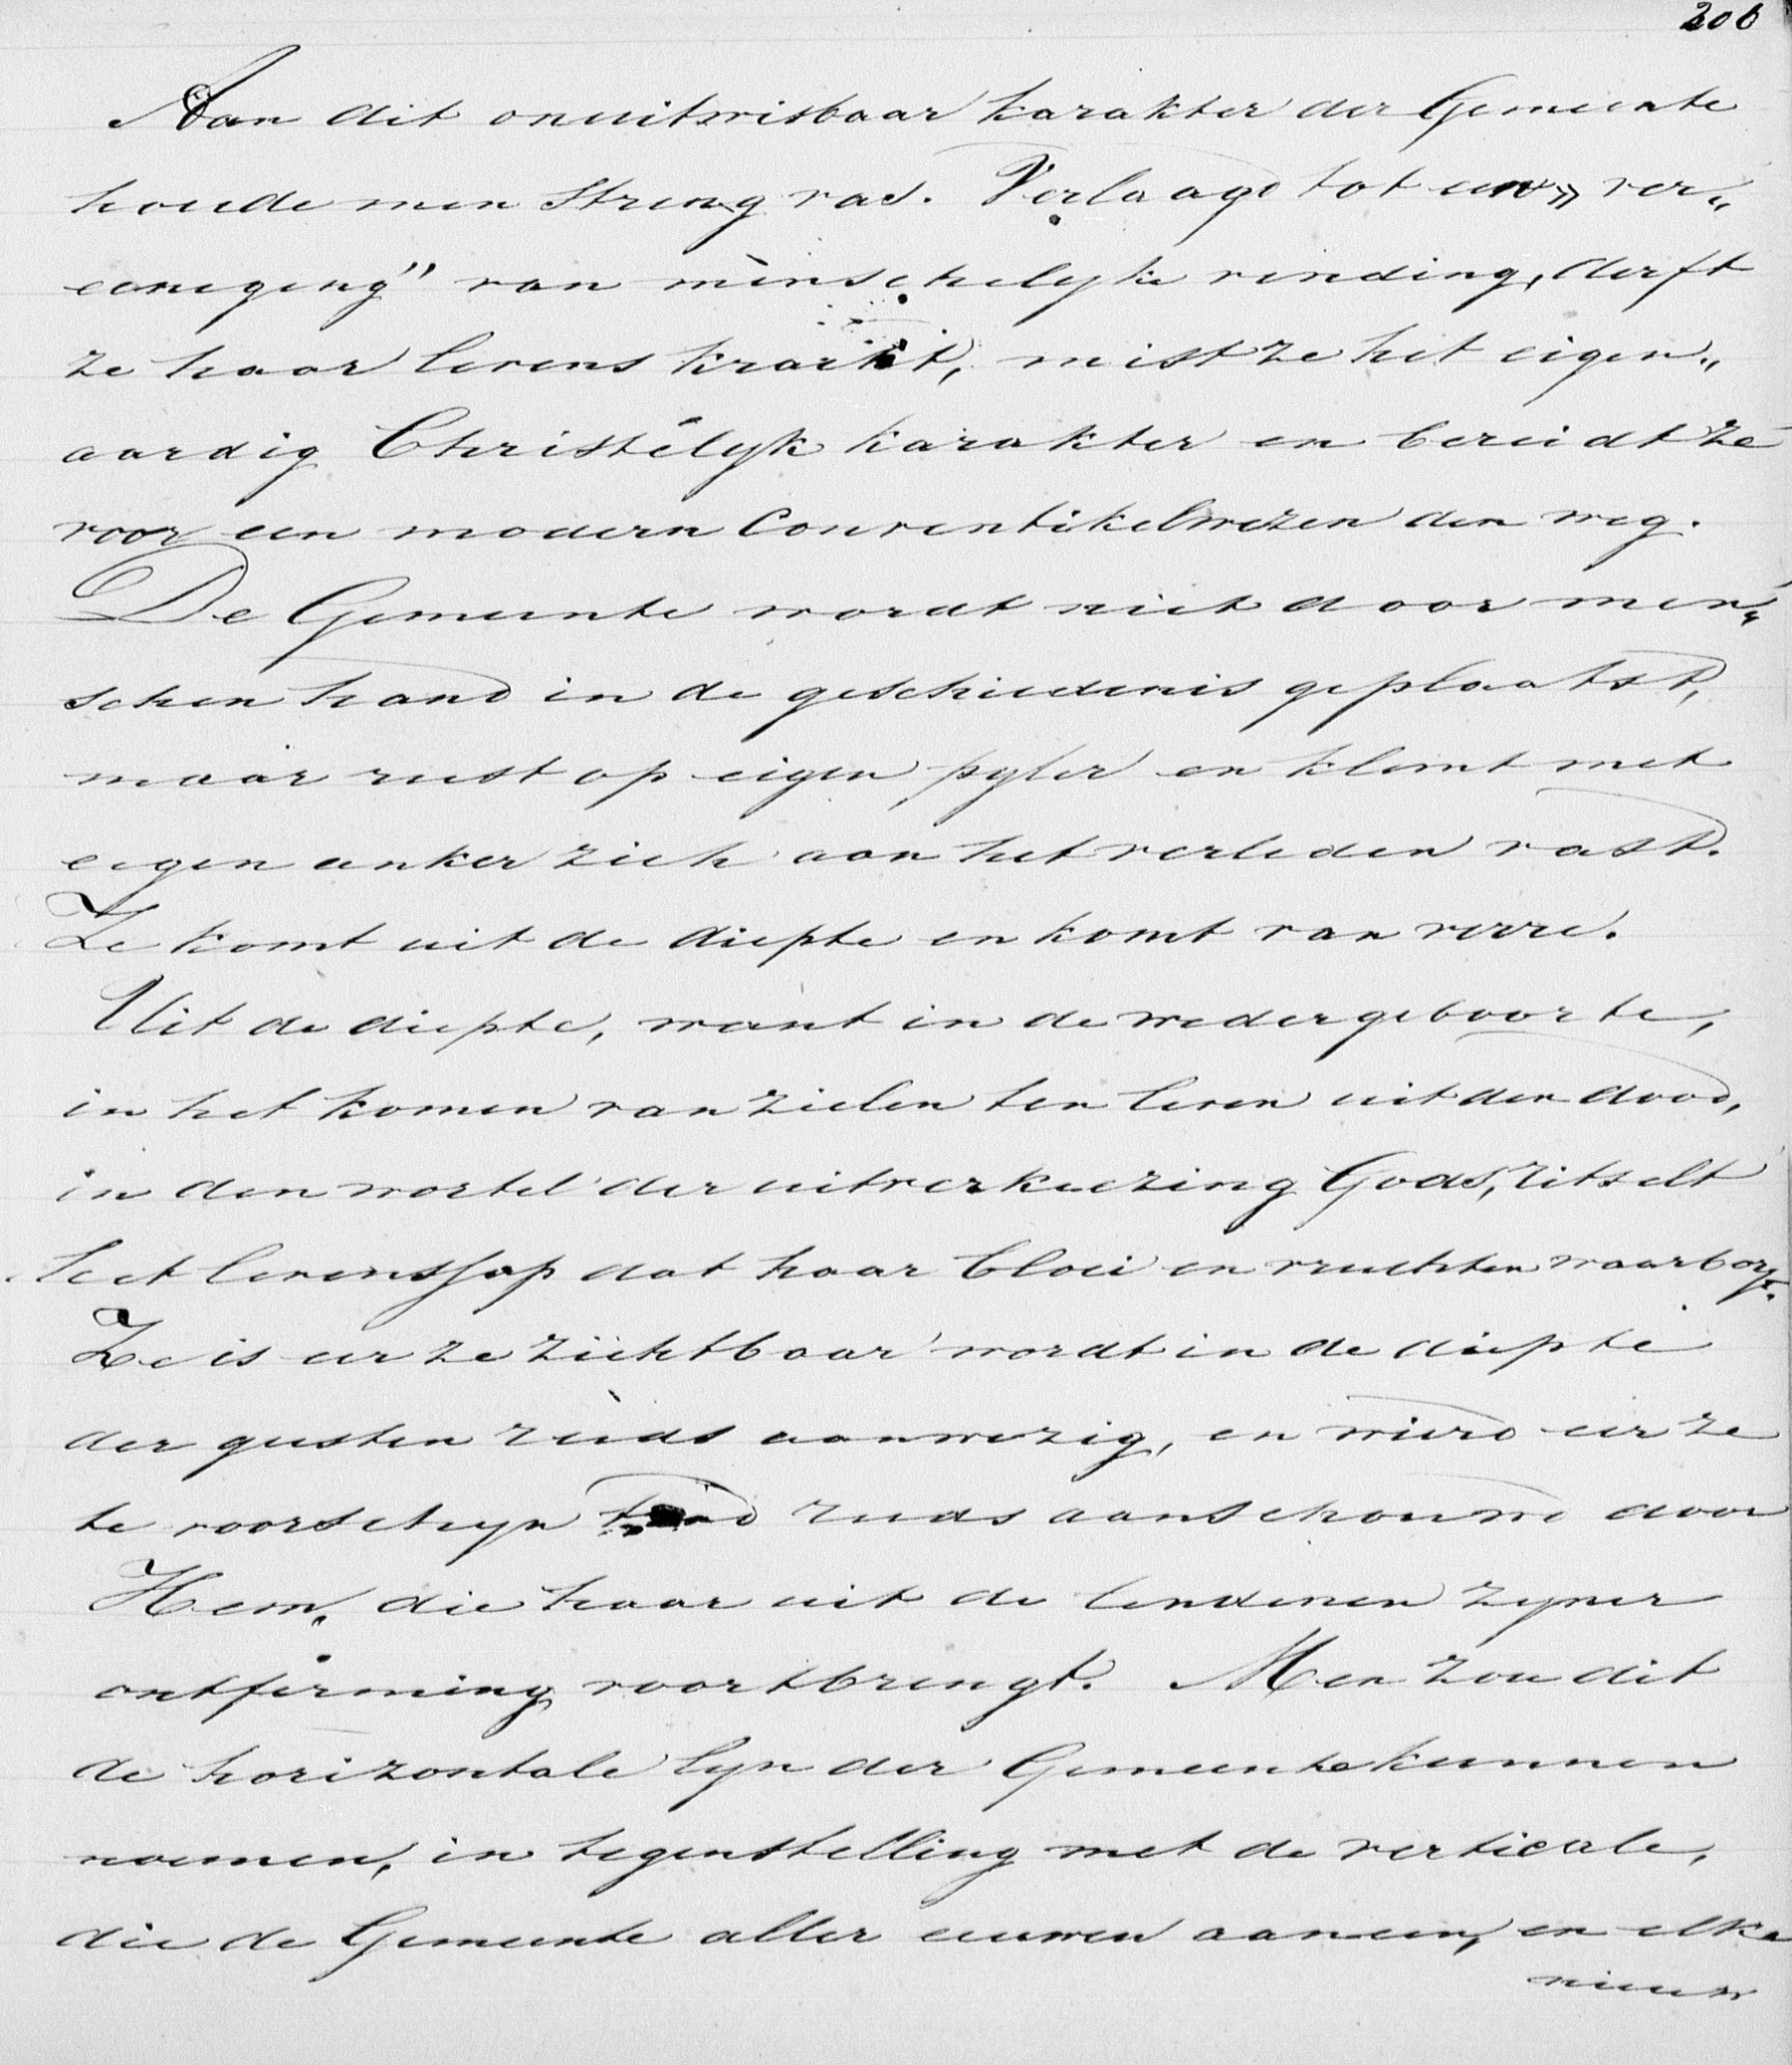 206
Aan dit onuitwisbaar karakter der Gemeente
houde men streng vas. Verlaagd tot een „ver„
eeniging" van menschelyke vinding, derft
ze haar levenskracht, mist ze het eigen„
aardig Christelyk karakter en bereidt ze
voor een modern Conventikelwezen den weg.
De Gemeente wordt niet door men„
schen hand in de geschiedenis geplaatst,
maar rust op eigen pyler en klemt met
eigen anker zich aan het verleden vast.
Ze komt uit de diepte en komt van verre.
Uit de diepte, want in de wedergeboorte,
in het komen van zielen ten leven uit den dood,
in den wortel der uitverkiezing Gods, ritselt
het levenssap dat haar bloei en vruchten waarborgt.
Ze is eer ze zichtbaar wordt in de diepte
der geesten reeds aanwezig, en wierd eer ze
te voorschyn trad reeds aanschouwd door
Hem, die haar uit de lendenen zyner
ontferming voortbrengt. Men zou dit
de horizontale lyn der Gemeente kunnen
noemen, in tegenstelling met de verticale,
die de Gemeente aller eeuwen aaneen, en elke
nieuw